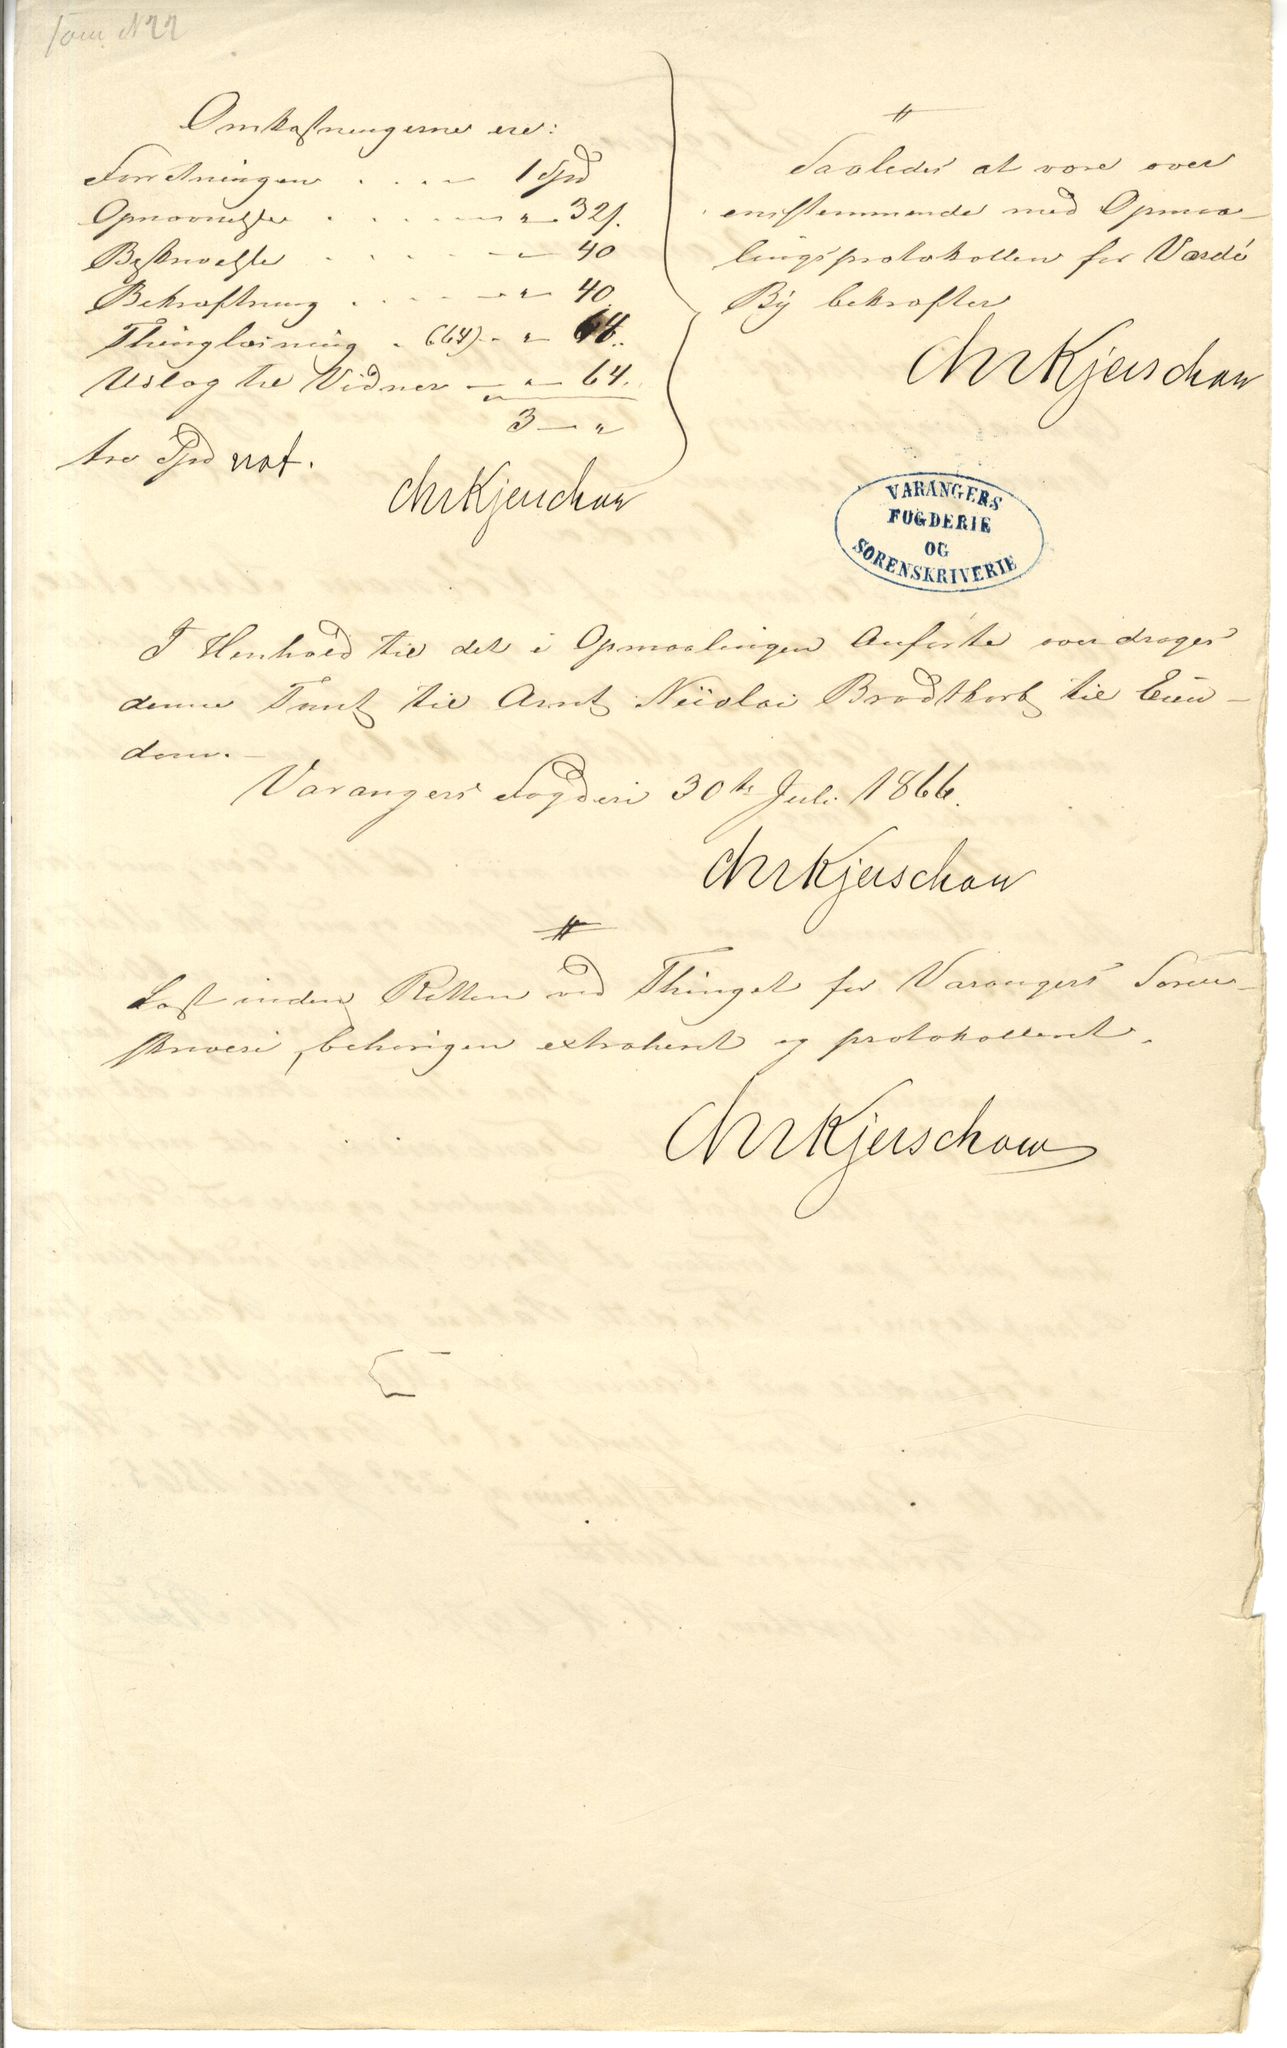 Tom. N 22
Omkostningerne ere:
Forretningen . . . . — 1 Spd
Opnævnelse . . . . . — " — 32 s.
Beskrivelse . . . . . — " — 40
Bekræftning . . . . — " — 40.
Thinglæsning . (64) — " — 64.
Udlæg til Vidner — " — 64.
3 — "
tre Spd
Chr Kjerschow
Saaledes at være over
ensstemmende med Opmaa-
lingsprotokollen for Vardö
By bekræfter
Chr Kjerschow
VARANGERS
FOGDERIE
OG
SORENSKRIVERIE
I Henhold til det i Opmaalingen Anførte overdrages
denne Tomt til Arnt Nicolai Brodtkorb til Eien-
dom. —
Varangers Fogderi 30te Juli 1866.
Chr Kjerschow
Læst inden Retten ved Thinget for Varangers Soren-
skriveri, behørigen extraheret og protokolleret.
Chr Kjerschow